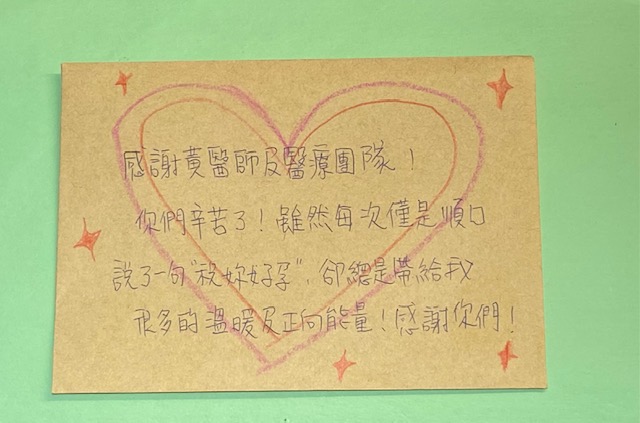 感謝黃醫師及醫療團隊！
你們辛苦了！雖然每次僅是順口
說了一句"祝妳好孕"，卻總是帶給我
很多的溫暖及正向能量！感謝你們！